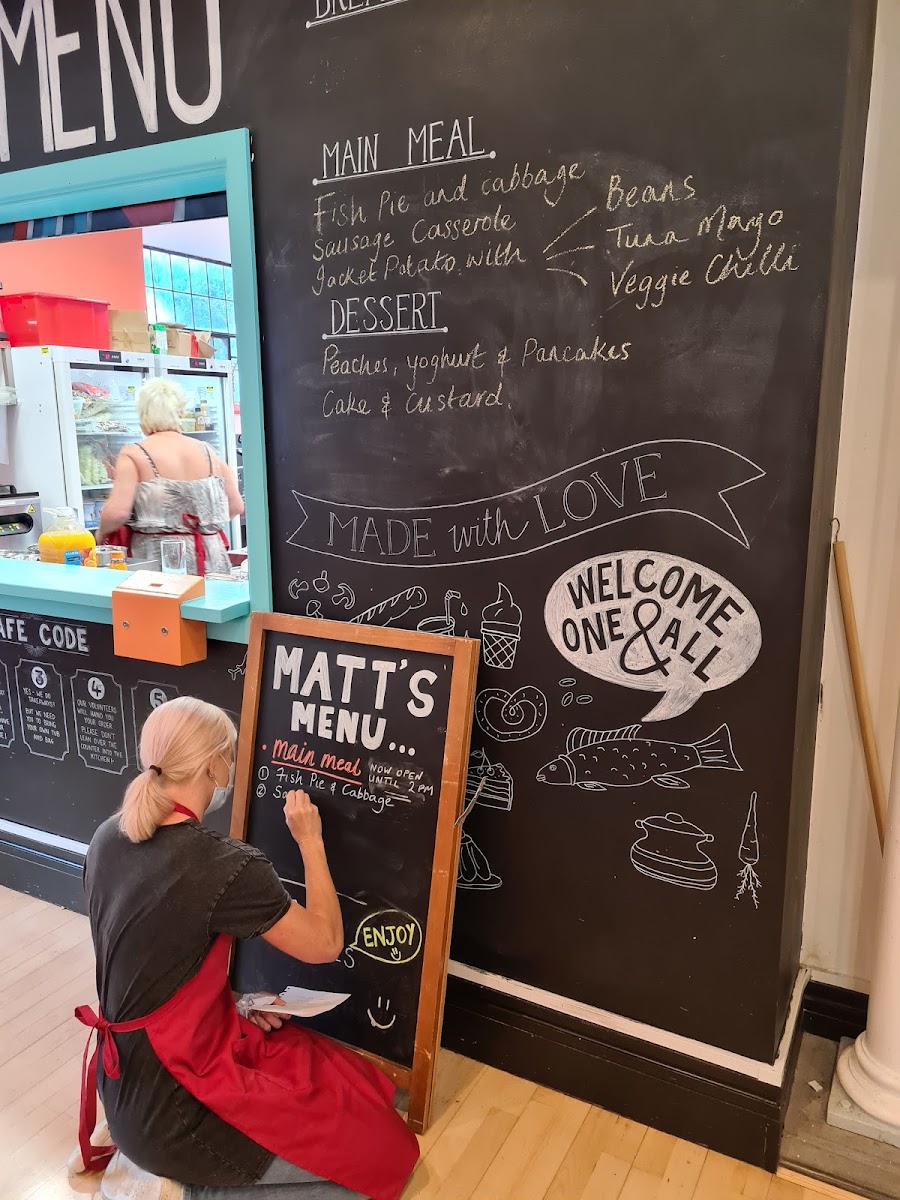 MENU
MAIN MEAL
Fish Pie and cabbage
Sausage Casserole
Jacket Potato with
Beans
Tuna Mayo
Veggie Chilli
DESSERT
Peaches, yoghurt & Pancakes
Cake & custard.
MADE with LOVE
WELCOME
ONE & ALL
AFE CODE
3
YES - WE DO
TAKEAWAYS!
BUT WE NEED
YOU TO BRING
YOUR OWN TUB
AND BAG
4
OUR VOLUNTEERS
WILL HAND YOU
YOUR ORDER
PLEASE DON'T
LEAN OVER THE
COUNTER INTO THE
KITCHEN!
5
MATT'S
MENU...
• main meal
NOW OPEN
UNTIL 2PM
1 Fish Pie & Cabbage
2 Sa
ENJOY